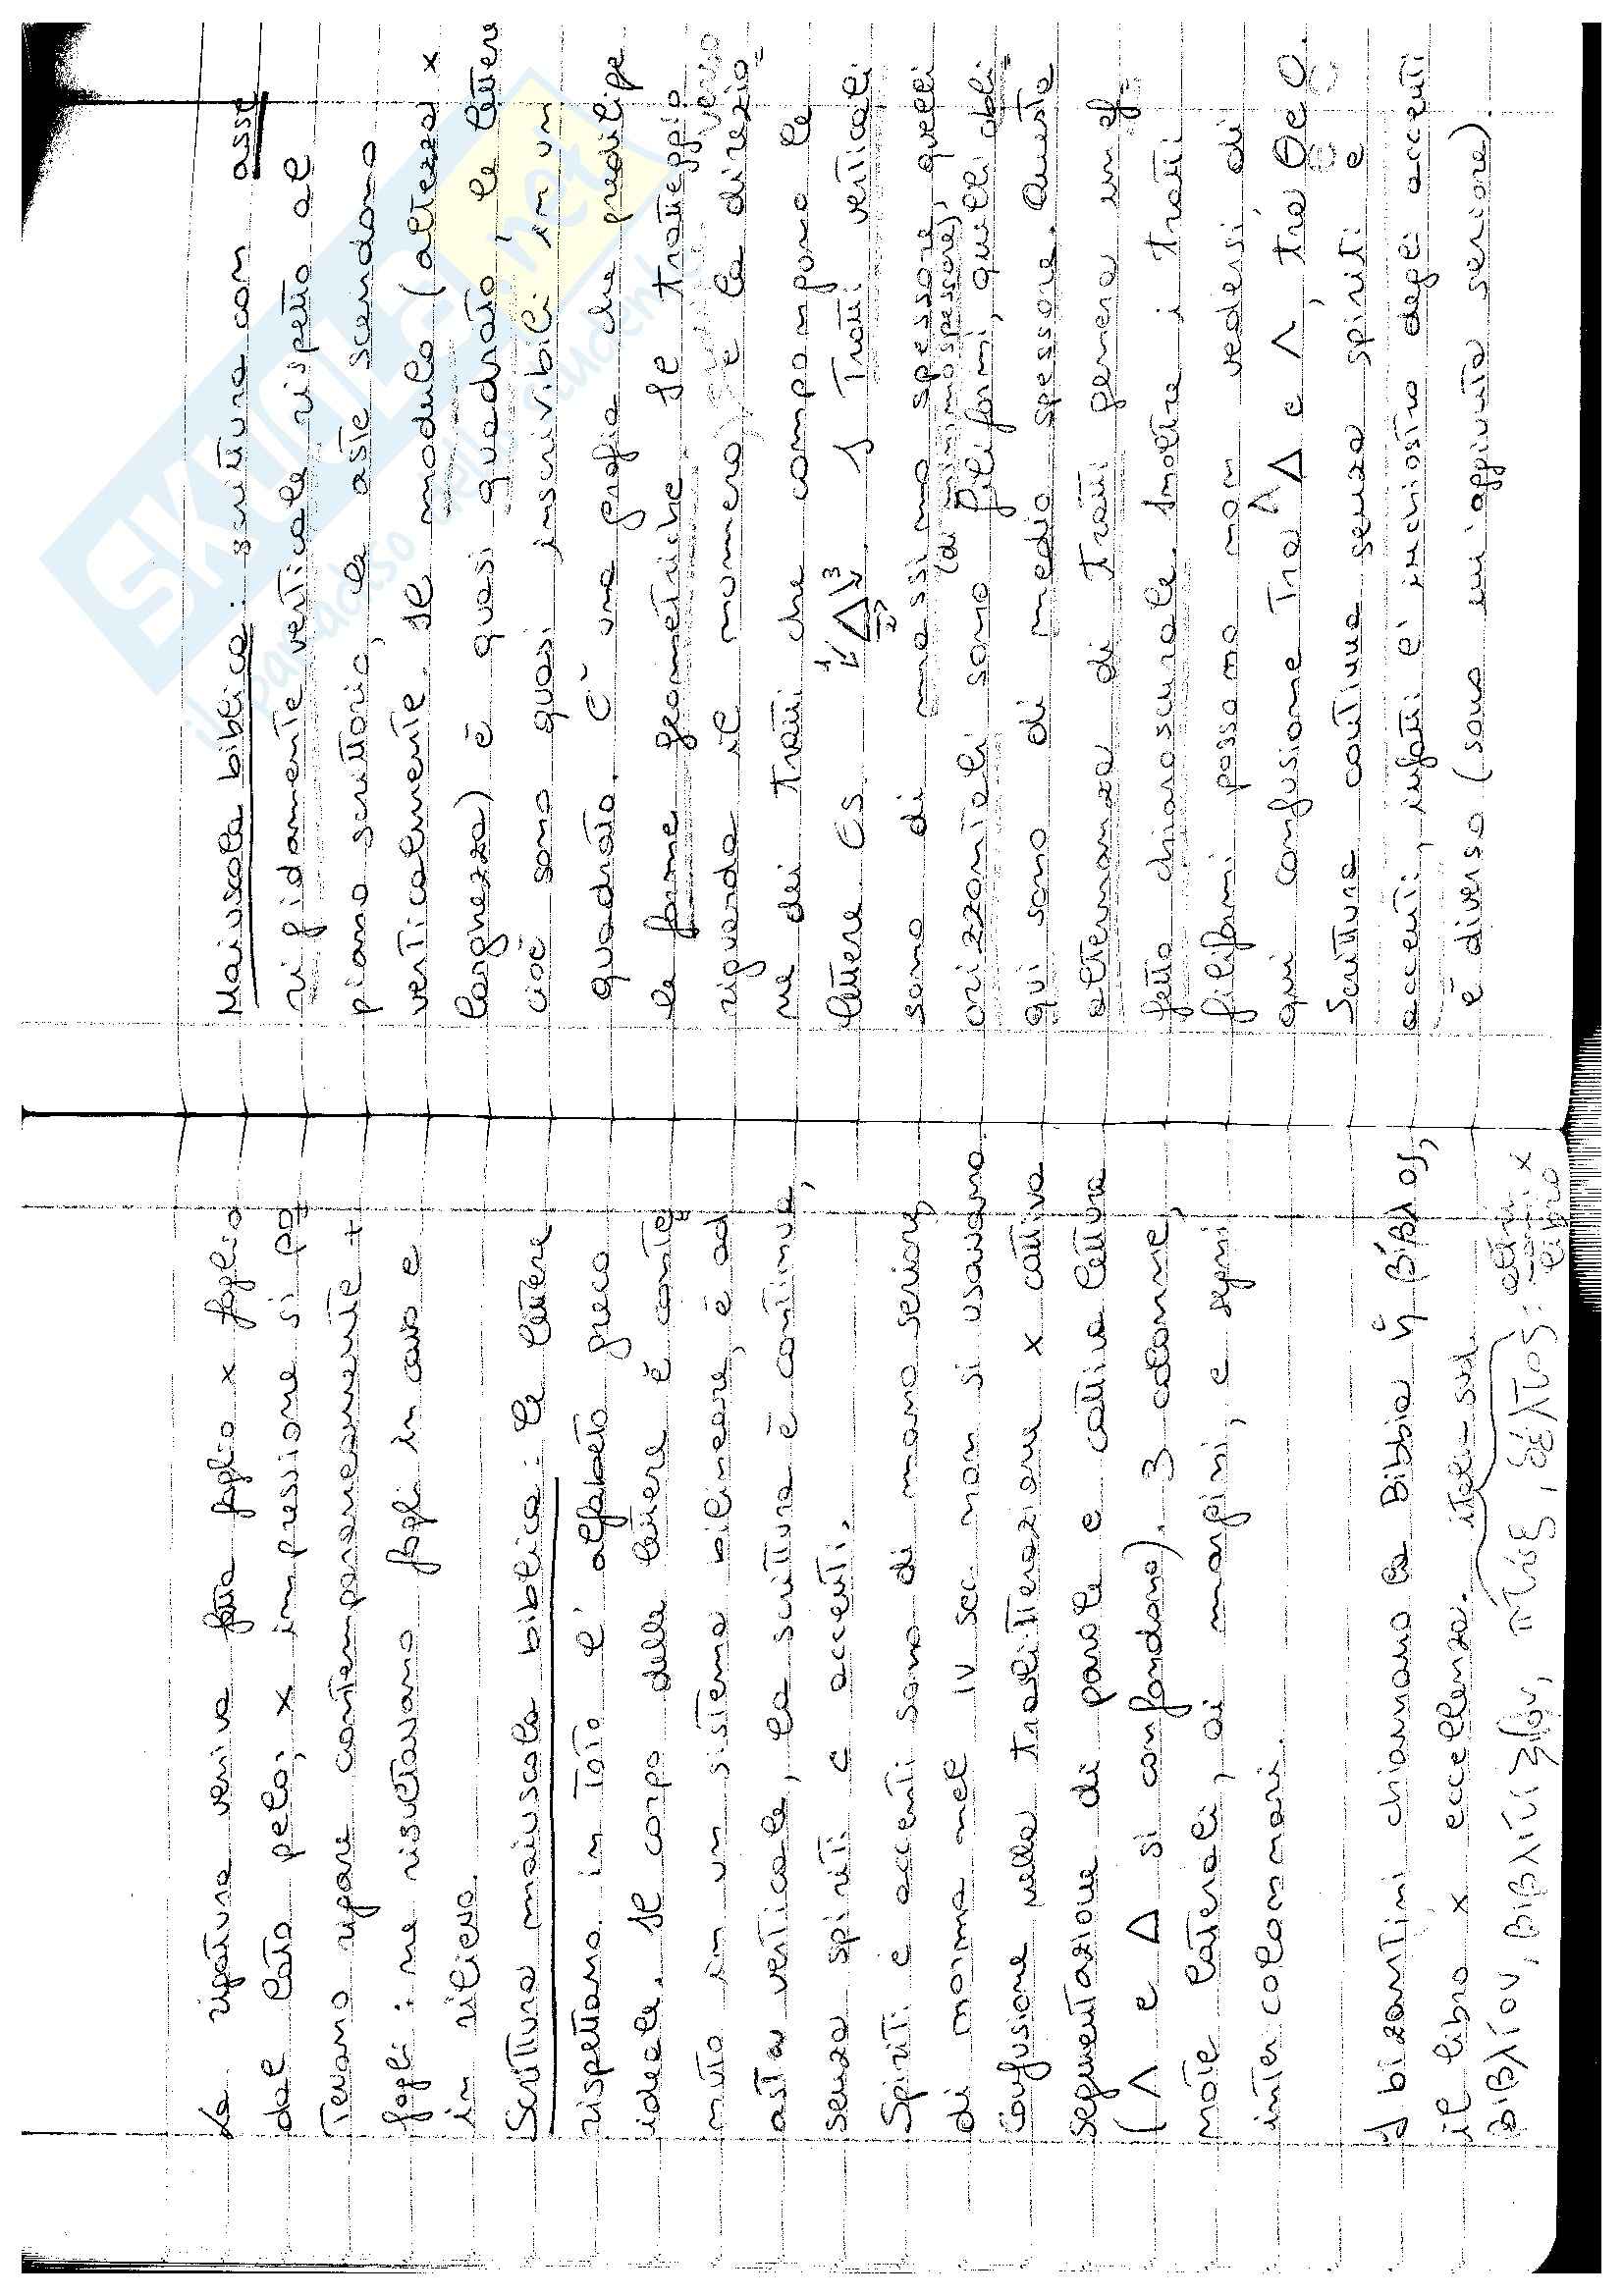 La rigatura veniva fatta foglio x foglio
dal lato pelo; x impressione si po
tevano rigare contemporaneamente +
fogli: ne risultavano fogli in cavo e
in rilievo.
Scrittura maiuscola biblica: le lettere
rispettano in toto l'alfabeto greco
ideale. Il corpo delle lettere è conte=
nuto in un sistema bilineare, è ad
asse verticale, la scrittura è continua,
senza spiriti e accenti.
Spiriti e accenti sono di mano seriore,
di norma nel IV sec non si usavano.
Confusione nella traslitterazione x cattiva
segmentazione di parole e cattiva lettura
(Λ e Δ si confondono). 3 colonne,
note laterali, ai margini, e segni
intercolonnari.
I bizantini chiamano la Bibbia ἡ βίβλος,
il libro x eccellenza.
βιβλίον, βιβλιτίζιον, πτύξ, δέλτος: altri
nomi x
libro
Maiuscola biblica: scrittura con asse
rigidamente verticale rispetto al
piano scrittorio, le aste scendono
verticalmente. Il modulo (altezza x
larghezza) è quasi quadrato, le lettere
cioè sono quasi inscrivibili in un
quadrato. È una grafia che predilige
le forme geometriche. Il tratteggio
riguarda il numero, il verso
e la direzio=
ne dei tratti che compongono le
lettere es. 1 Δ 3 2 I tratti verticali
sono di massimo spessore, quelli
(di minimo spessore)
orizzontali sono filiformi, quelli obli=
qui sono di medio spessore. Questa
alternanza di tratti genera un ef=
fetto chiaroscurale. Inoltre i tratti
filiformi possono non vedersi, di
qui confusione tra Δ e Λ, tra Θ e Ο.
Scrittura continua senza spiriti e
accenti, infatti l'inchiostro degli accenti
è diverso (sono un'aggiunta seriore).
SKUOLA.net
il paradiso dello studente